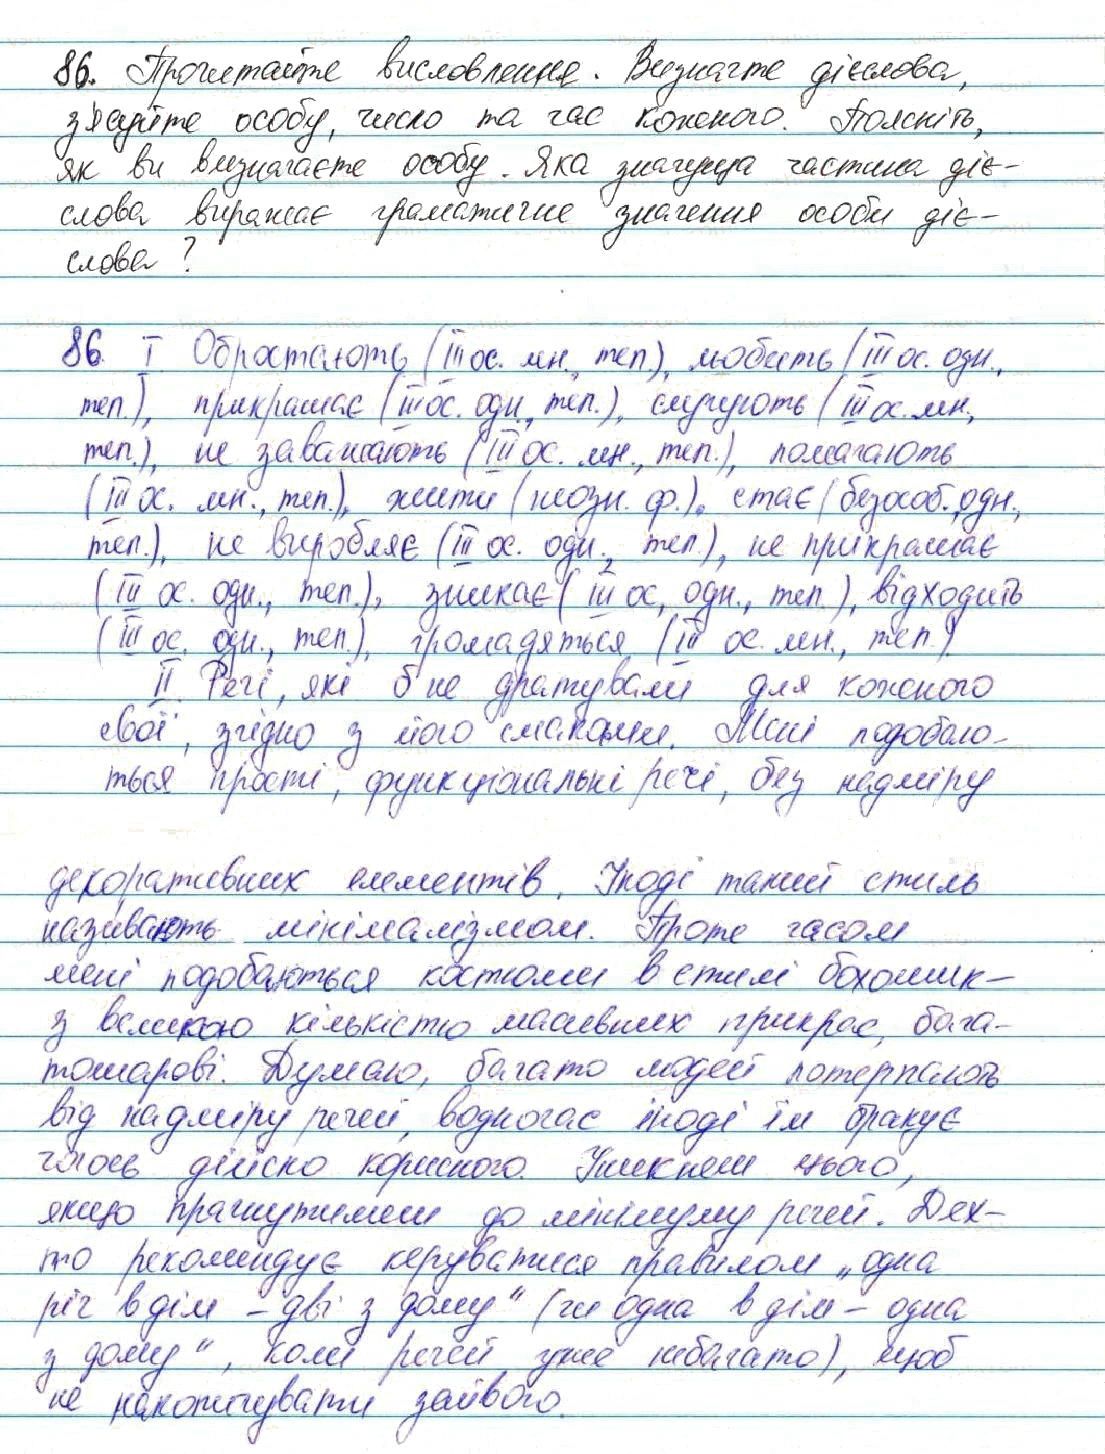 86. Прочитайте висловлення. Визначте дієслова,
з'ясуйте особу, число та час кожного. Поясніть,
як ви визначаєте особу. Яка значуща частина діє-
слова виражає граматичне значення особи діє-
слова?
86 I Обростають (III ос. мн., теп.), любить (III ос. одн.,
теп.), прикрашає (III ос. одн., теп.), служать (III ос. мн.,
теп.), не заважають (III ос. мн., теп.), помагають
(III ос. мн., теп.), жити (неозн. ф.). стає (безособ., одн.,
теп.), не виробляє (III ос. одн., теп.), не прикрашає
(III ос. одн., теп.), зникає (III ос, одн., теп.), відходить
(III ос. одн., теп.), громадяться (III ос. мн., теп.)
II Речі, які б не дратували для кожного
свої, згідно з його смаками. Мені подобаю-
ться прості, функціональні речі, без надміру
декоративних елементів. Іноді такий стиль
називають мінімалізмом. Проте часом
мені подобаються костюми в стилі бохошик-
з великою кількістю масивних прикрас, бага-
тошарові. Думаю, багато людей потерпають
від надміру речей, водночас іноді їм бракує
чогось дійсно корисного. Уникнеш цього,
якщо прагнутимеш до мінімуму речей. Дех-
то рекомендує керуватися правилом „одна
річ в дім – дві з дому" (чи одна в дім – одна
з дому", коли речей уже небагато), щоб
не накопичувати зайвого.